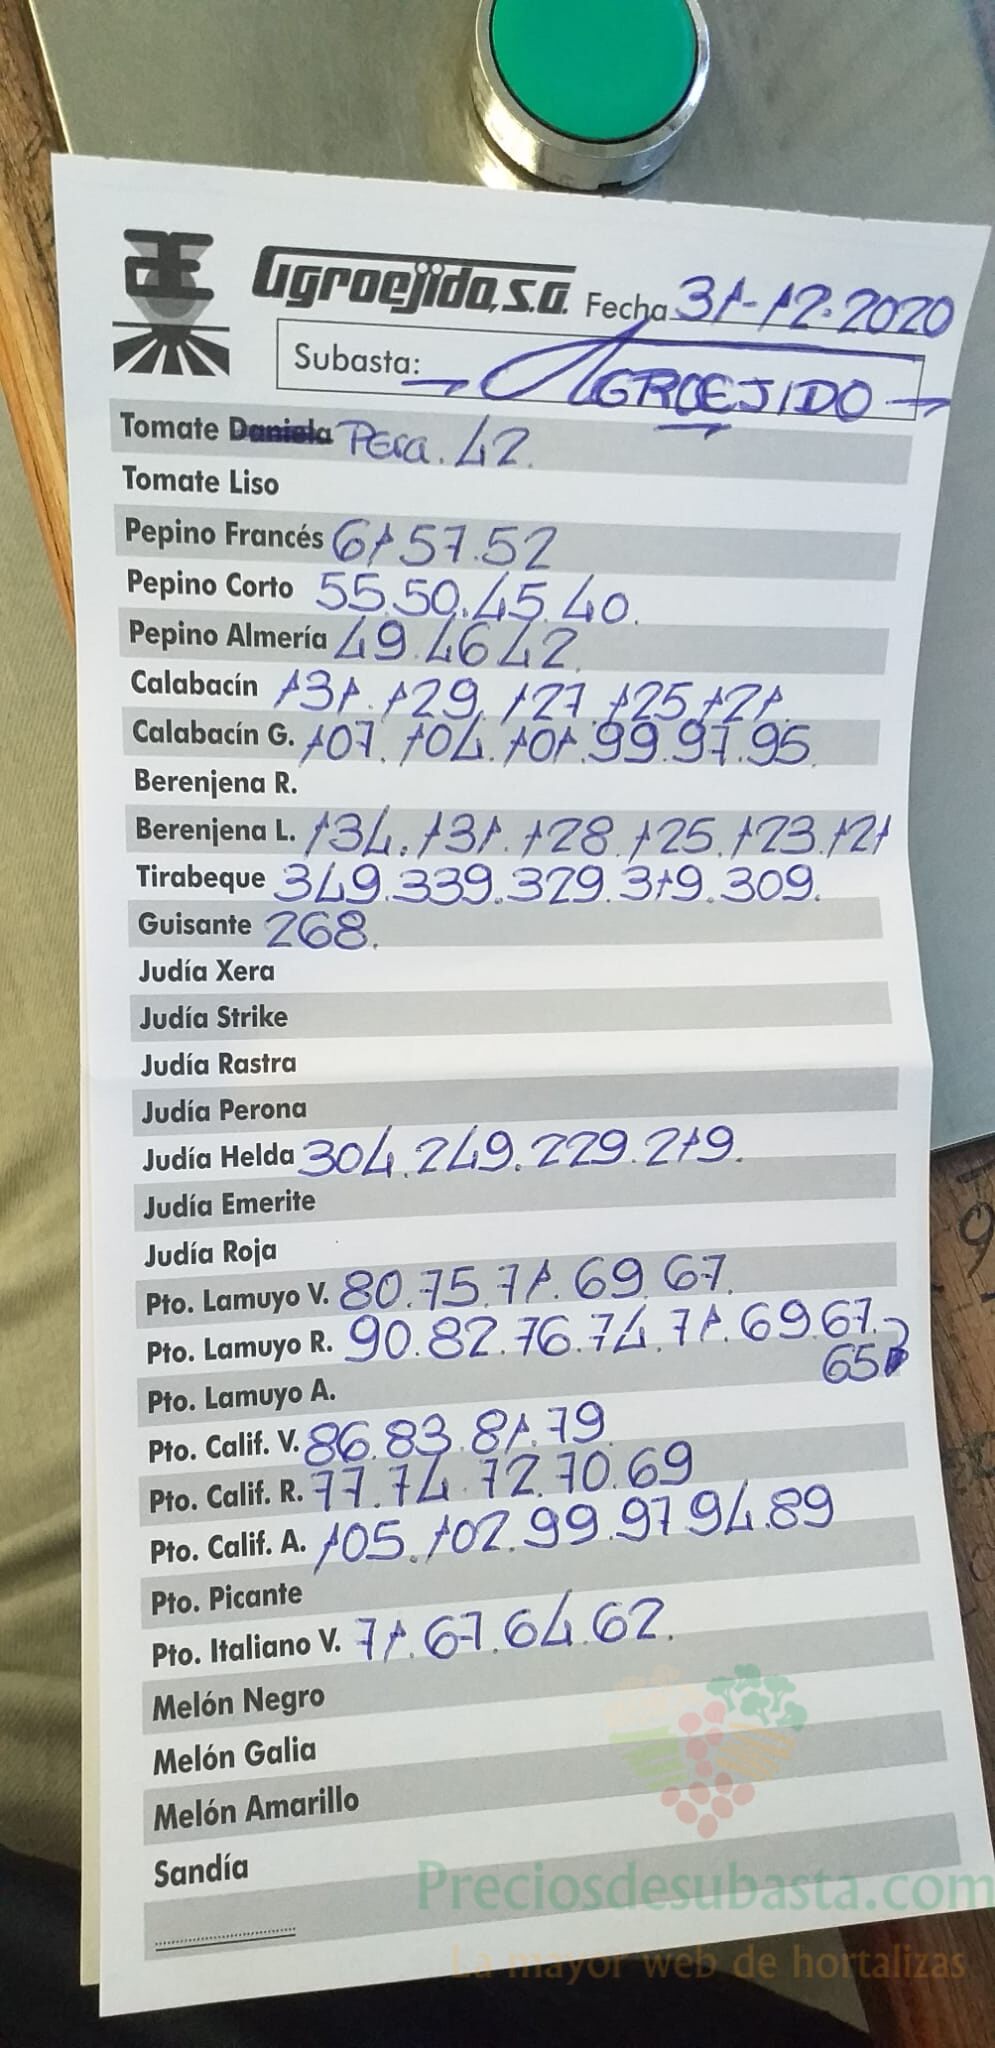 Æ
Agroejido, S.A. Fecha 31-12-2020
Subasta: AGROEJIDO
Tomate Daniela Pera. 42.
Tomate Liso
Pepino Francés 61 57.52
Pepino Corto 55.50.45.40.
Pepino Almería 49.46 42.
Calabacín 131.129.127.125.121.
Calabacín G. 107.104.101.99.97.95.
Berenjena R.
Berenjena L. 134.131.128.125.123.121
Tirabeque 349.339.329.319.309.
Guisante 268.
Judía Xera
Judía Strike
Judía Rastra
Judía Perona
Judía Helda 304.249.229.219.
Judía Emerite
Judía Roja
Pto. Lamuyo V. 80.75.71.69.67.
Pto. Lamuyo R. 90.82.76.74.71.69.67.
65
Pto. Lamuyo A.
Pto. Calif. V. 86.83.81.79
Pto. Calif. R. 77.74.72.70.69
Pto. Calif. A. 105.102.99.97 94.89
Pto. Picante
Pto. Italiano V. 71.67.64.62.
Melón Negro
Melón Galia
Melón Amarillo
Sandía
Preciosdesubasta.com
La mayor web de hortalizas